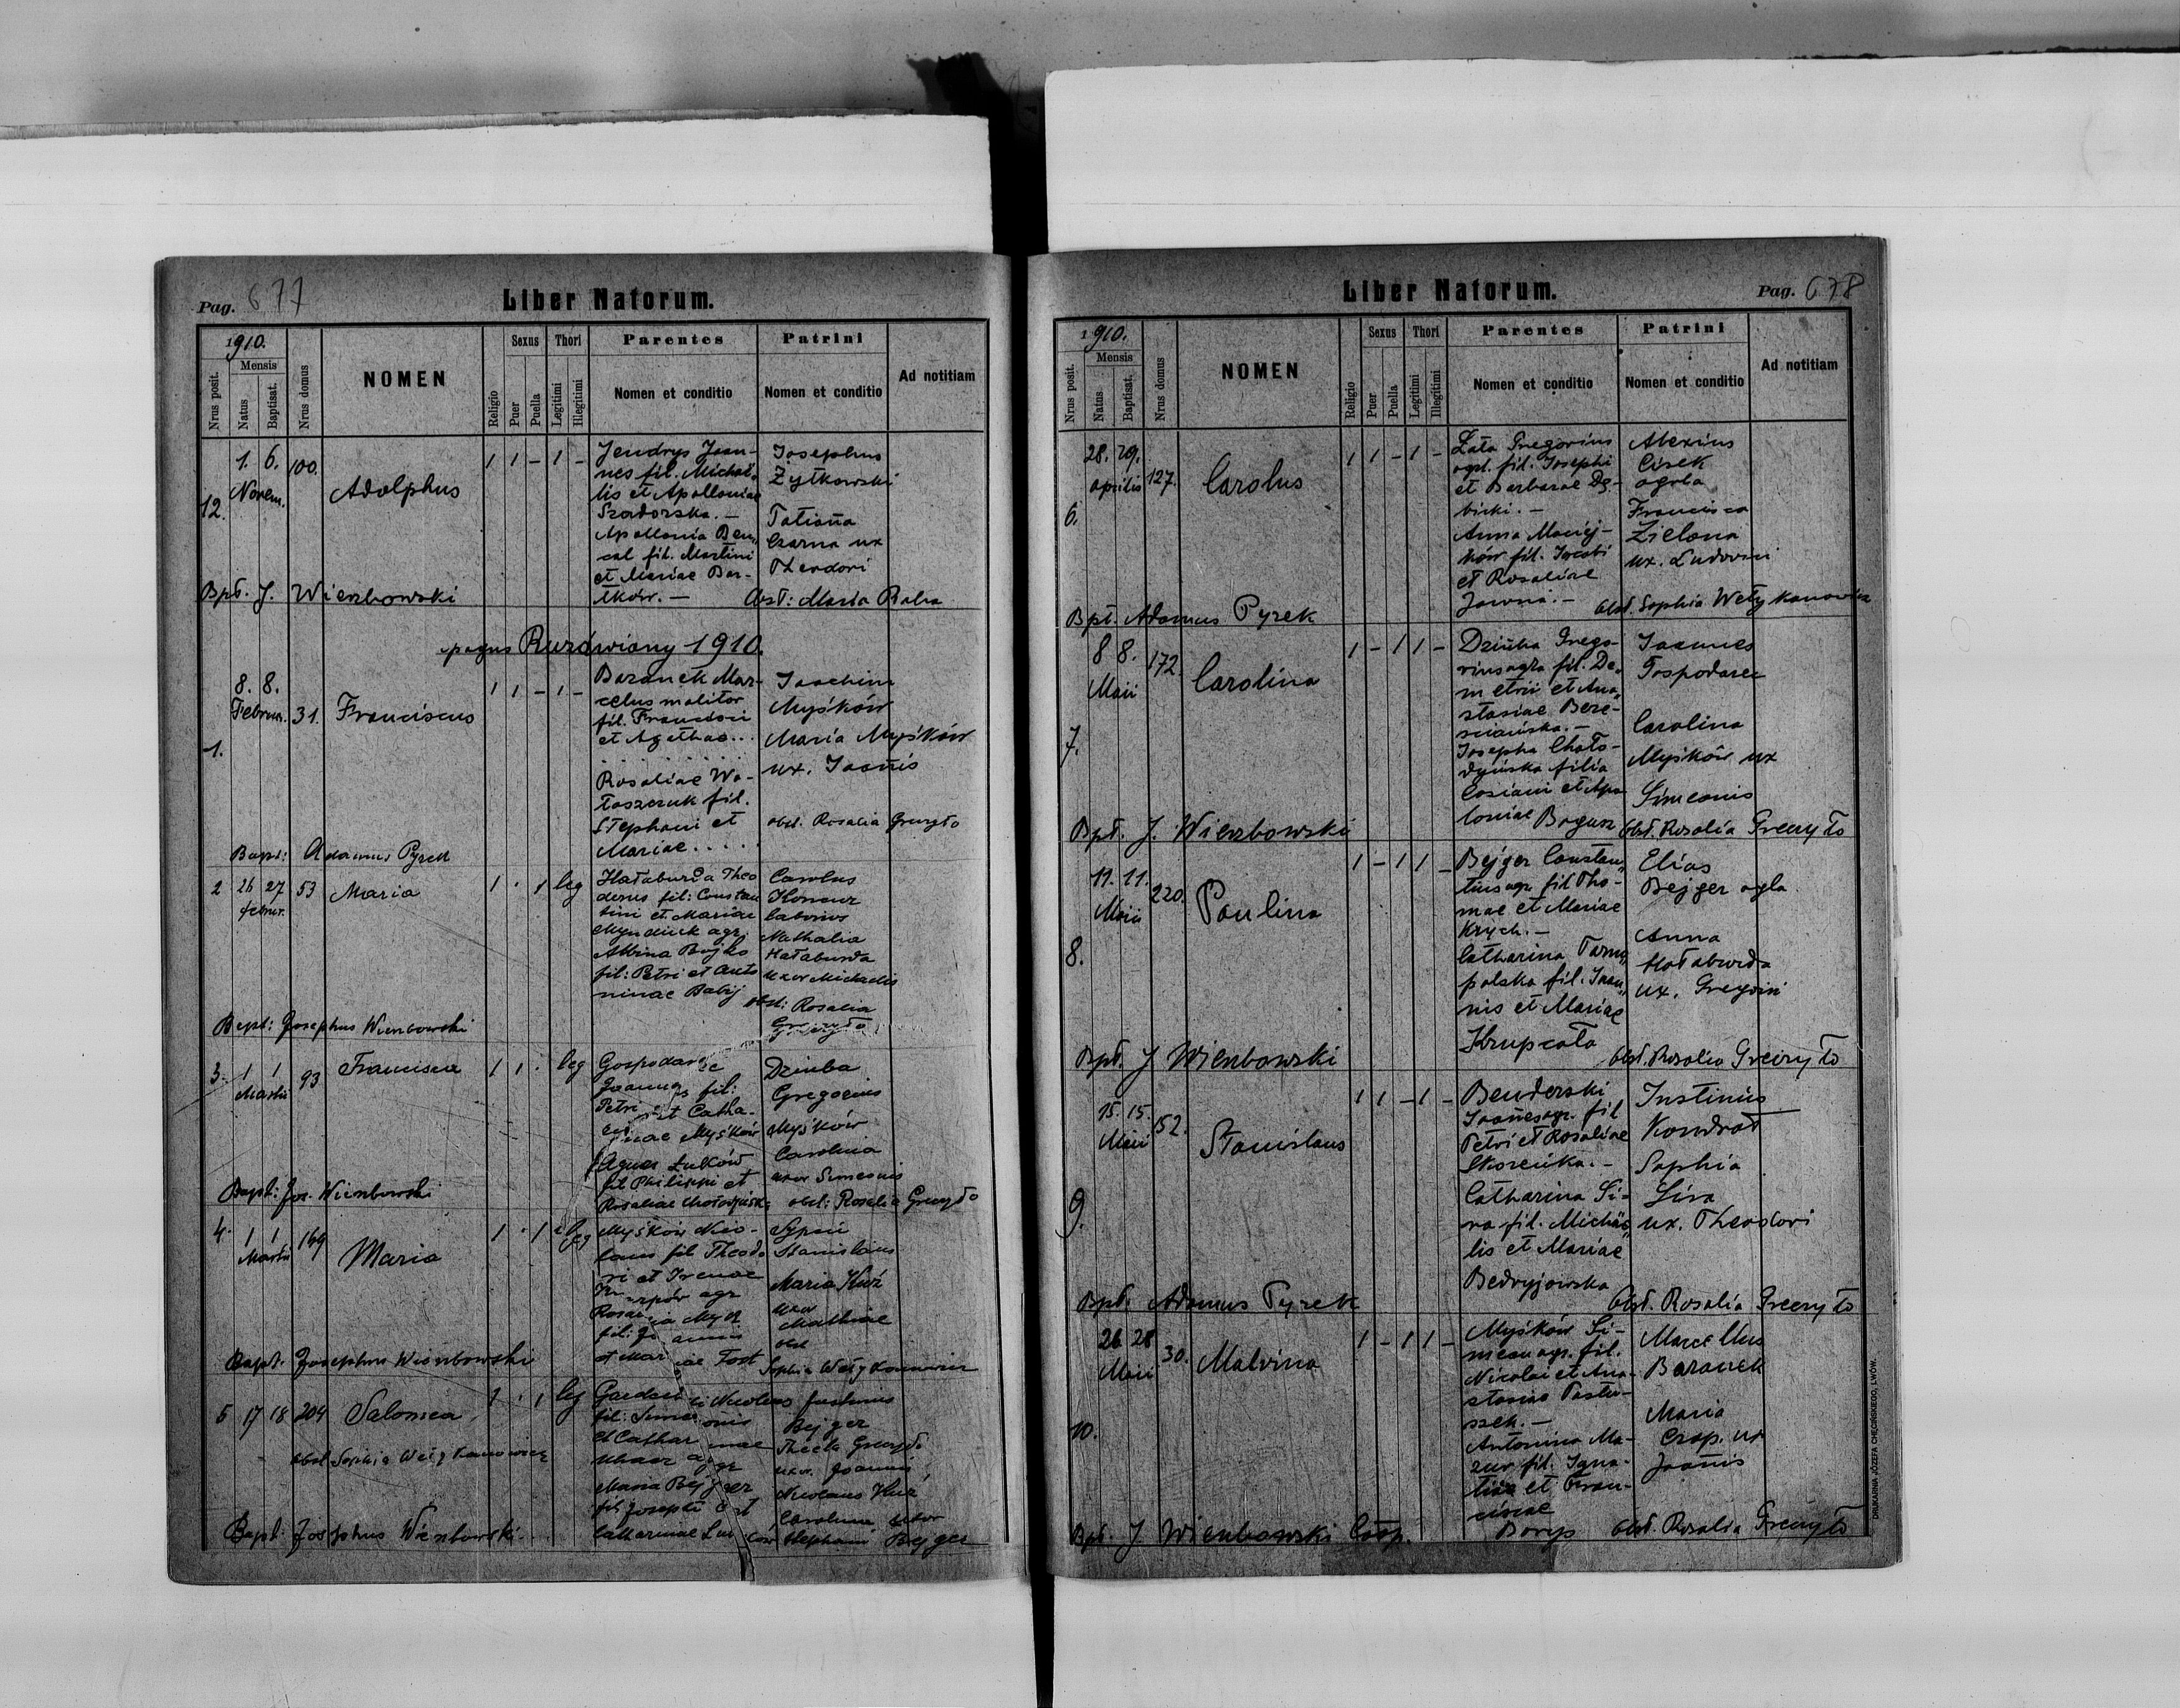 Pag. 677
Liber Natorum.
1910.
Nrus posit.
Mensis
Natus
Baptisat.
Nrus domus
NOMEN
Religio
Sexus
Puer
Puella
Thori
Legitimi
Illegitimi
Parentes
Nomen et conditio
Patrini
Nomen et conditio
Ad notitiam
12.
1. 6.
Novem.
100.
Adolphus
1 1 - 1 -
Jendrys Joan-
nes fil. Michae-
lis et Apolloniae
Szadorska. -
Apollonia Ben-
cal fil. Martini
et Mariae Bar-
tków. -
Josephus
Żytkowski
Tatiana
Czarna ux
Theodori
Obst: Maria Baba
Bpt. J. Wierzbowski
pagus Rurzdwiany 1910.
1.
8. 8.
Februar.
31.
Franciscus
1 1 - 1 -
Baranek Mar-
celus molitor
fil. Francisci
et Agathae...
Rosaliae Wo-
łoszczuk fil.
Stephani et
Mariae.....
Joachim
Myśków
Maria Myśków
ux. Joañis
obst. Rosalia Greczyło
Bapt: Adamus Pyrek
2
26 27
februar.
53
Maria
1 . 1 leg
Hałaburda Theo
dorus fil: Constan
tini et Mariae
agr.
Albina Bojko
fil: Petri et Anto
ninae Babij
Carolus
Nathalia
Hałaburda
uxor Michaelis
obst: Rosalia
Greczyło
Bapt: Josephus Wierzbowski
3.
1 1
Martii
93
Francisca
1 1 . leg
Gospodarec
Joannes fil:
Petri et Catha-
rinae Myśków
Agnes Łuków
fil Philippi et
Rosaliae
Dziuba
Gregorius
Myśków
Carolina
uxor Simeonis
obst: Rosalia Greczyło
Bapt: Jos. Wierzbowski
4.
1 1
Martii
169
Maria
1 . 1 leg
Myśków Nico-
laus fil Theodo
ri et Irenae
agr
fil: Joannis
et Mariae Tost
Stanislaus
Maria
uxor
Mathiae
obst
Sophia Wełykanowicz
Bapt. Josephus Wierzbowski
5
17 18
204
Salomea
1 . 1 leg
obst Sophia Wełykanowicz
Nicolaus
fil: Simeonis
et Catharinae
agr
Maria Bejger
fil Josephi et
Catharinae
Justinus
Bejger
Thecla Greczyło
uxor Joannis
Nicolaus
Carolina uxor
Stephani Bejger
Bapt. Josephus Wierzbowski
Pag. 678
Liber Natorum.
1910.
Nrus posit.
Mensis
Natus
Baptisat.
Nrus domus
NOMEN
Religio
Sexus
Puer
Puella
Thori
Legitimi
Illegitimi
Parentes
Nomen et conditio
Patrini
Nomen et conditio
Ad notitiam
6.
28. 29.
aprilis
127.
Carolus
1 1 - 1 -
Łata Gregorius
agrl. fil. Josephi
et Barbarae Dę-
bicki. -
Anna Maciej-
ków fil. Jacobi
et Rosaliae
Jawna. -
Alexius
Cisek
agrla
Francisca
Zielona
ux. Ludovici
Obst. Sophia Wełykanowicz
Bpt. Adamus Pyrek
7.
8 8.
Maii
172.
Carolina
1 - 1 1 -
Dziuba Grego-
rius agla fil. De-
metrii et Ana-
stasiae Bere-
sciańska. -
Josepha Choło-
dyńska filia
Cosiani et Apo
loniae Bogusz
Joannes
Gospodarec
Carolina
Myśków ux
Simeonis
Obst. Rosalia Greczyło
Bpt. J. Wierzbowski
8.
11. 11.
Maii
220.
Paulina
1 - 1 1 -
Bejger Constan-
tius agr. fil Tho-
mae et Mariae
Krych. -
Catharina Tarno-
polska fil. Joan-
nis et Mariae
Krupcała
Elias
Bejger agla.
Anna
Hałaburda
ux. Gregorii
Obst. Rosalia Greczyło
Bpt. J Wierzbowski
9.
15. 15.
Maii
52.
Stanislaus
1 1 - 1 -
Benderski
Joañes agr. fil
Petri et Rosaliae
Skoreńka. -
Catharina Si-
ra fil. Michae-
lis et Mariae
Bedryjowska
Justinus
Kondrat
Sophia
Sira
ux. Theodori
Obst. Rosalia Greczyło
Bpt. Adamus Pyrek
10.
26 28
Maii
30.
Malvina
1 - 1 1 -
Myśków Si-
meon agr. fil.
Nicolai et Ana-
stasiae Pastu-
szek. -
Antonina Ma-
zur fil. Igna-
tii et Fran-
ciscae
Borys
Marcellus
Baranek
Maria
Czop. ux
Joañis
Obst. Rosalia Greczyło
Bpt. J. Wierzbowski Coop.
DRUKARNIA JÓZEFA CHĘCIŃSKIEGO, LWÓW.